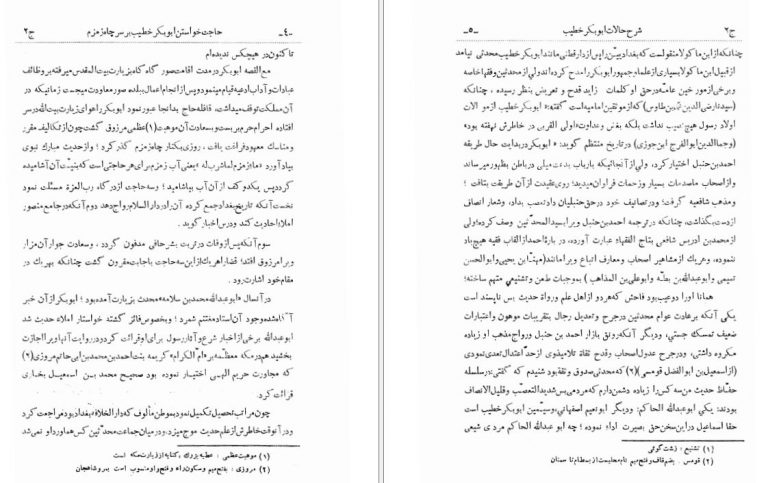 -٤-
حاجت خواستن ابوبکر خطیب بر سر چاه زمزم
ج۲
تا کنون در هیچکس ندیده‌ام
مع القصه ابوبکر در مدت اقامت صور گاه گاه بزیارت بیت المقدس میرفته بر وظائف
عبادات و آداب ادعیه قیام مینمود و پس از انجام اعمال بلده صور معاودت میجست زمانیکه در
آن مملکت توقف میداشت، قافله حاج بدانجا عبور نمود ابوبکر را هوای زیارت بیت الله در سر
افتاده احرام حرم بربست و بسعادت آن موهبت (۱) عظمی مرزوق گشت چون از تکالیف مقرر
ومناسک معهود فراغت یافت، روزی بکنار چاه زمزم گذر کرد؛ و از حدیث مبارک نبوی
بیاد آورد «ماء زمزم لما شرب له» یعنی آب زمزم برای هر حاجتی است که بنیّت آن آشامیده
کردد پس یکدو کف از آن آب بیاشامید؛ و سه حاجت از درگاه رب العزة مسئلت نمود
نخست آنکه تاریخ بغداد جمع کرده آن را در دار السلام رواج دهد دوم آنکه در جامع منصور
املاء احادیث کند و درس اخبار گوید.
سوم آنکه پس از وفات در تربت بشر حافی مدفون گردد، وسعادت جوار آن مزار
ویرا مرزوق افتد؛ قضارا هریک از این سه حاجت باجابت مقرون گشت چنانکه بهریک در
مقام خود اشارت رود.
در آنسال «ابو عبدالله محمد بن سلامه» محدث بزیارت آمده بود؛ ابوبکر از آن خبر
آگاه شده وجود آن استاد مغتنم شمرد؛ و بخصوص فائز گشته خواستار املاء حدیث شد
ابو عبدالله برخی از اخبار شرع و آثار رسول برای او قرائت کرد و در روایت آنها ویرا اجازت
بخشید هم در مکه معظمه بر «ام الکرام» کریمه بنت احمد بن محمد بن ابی حاتم مروزی (۲)
که مجاورت حریم الهی اختیار نموده بود صحیح محمد بن اسمعیل بخاری
قرائت کرد.
چون مراتب تحصیل تکمیل نمود بوطن مألوف که دار الخلافه بغداد بود مراجعت کرد
و در آنوقت خاطرش از علم حدیث موج میزد، و در میان جماعت محدّثین کس هماورد او نمی‌شد
(۱) موهبت عظمی: عطیه بزرك، کنایه از زیارت مکه است
(۲) مروزی: بفتح میم و سکون راء و فتح واو منسوب است بمرو شاهجان
ج۲
شرح حالات ابوبکر خطیب
-٥-
چنانکه از ابن ماکولا منقولست که بغدادیین را پس از دار قطنی مانند ابوبکر خطیب محدثی نیامد
از قبیل ابن ماکولا بسیاری از علماء جمهور ابوبکر را مدح کرده‌اند ولی از محدثین وفقهاء خاصه
و برخی از مورخین عامه در حق او کلمات زاید قدح و تعریض بنظر رسیده، چنانکه
(سید نارضی‌الدین بن طاوس) که از موثقین امامیه است گفته: «ابوبکر خطیب از موالات
اولاد رسول هیچ نصیب نداشت بلکه بغض وعداوت «اولی القربی در خاطرش نهفته بوده
(وجمال الدین ابو الفرج ابن جوزی) در تاریخ منتظم گوید: «ابوبکر در بدایت حال طریقه
احمد بن حنبل اختیار کرد، ولی از آنجائیکه بارباب بدعت میلی در باطن بظهور میرساند
و از اصحاب ما صدمات بسیار وزحمات فراوان میدید؛ روی عقیدت از آن طریقت بتافت؛
و مذهب شافعیه گرفت؛ و در تصانیف خود در حق حنبلیان داد تعصب بداد، وشعار انصاف
از دست بگذاشت، چنانکه در ترجمه احمد بن حنبل ویرا بسید المحدثین وصف کرده؛ ولی
از محمد بن ادریس شافعی بتاج الفقهاء عبارت آورده، در بارهٔ احمد از القاب فقیه هیچ یاد
ننموده، و هریک از مشاهیر اصحاب ومعارف اتباع ویرا مانند (مهنا بن یحیی وابو الحسن
تمیمی وابو عبدالله بن بطه وابو علی بن المذاهب) بموجبات طعن وتشنیعی متهم ساخته؛
همانا اورا دو عیب بود فاحش که هر دو از اهل علم و رواة حدیث بس ناپسند است
یکی آنکه برعادت عوام محدثین در جرح وتعدیل رجال بتقریبات موهون واعتبارات
ضعیف تمسک جستی، ودیگر آنکه رونق بازار احمد بن حنبل و رواج مذهب او زیاده
مکروه داشتی، و در جرح عدول اصحاب وقدح ثقاة تلامیذ وی از حد اعتدال تعدی نمودی
(از اسمعیل بن ابو الفضل قومسی) (۲) که محدثی صدوق و ثقه بود شنیدم که گفتی در سلسله
حفّاظ حدیث من سه کس را زیاده دشمن دارم که مردمی بس شدید التعصب و قلیل الانصاف
بودند: یکی ابو عبدالله الحاکم: و دیگر ابو نعیم اصفهانی، وسیمین ابوبکر خطیب است
حقا اسماعیل در این سخن حق بصیرت اداء نموده؛ چه ابو عبدالله الحاکم مردی شیعی
(۱) تشنیع: زشت گوئی
(۲) قومس. بضم قاف و فتح میم ناحیه‌ایست از بسطام تا سمنان